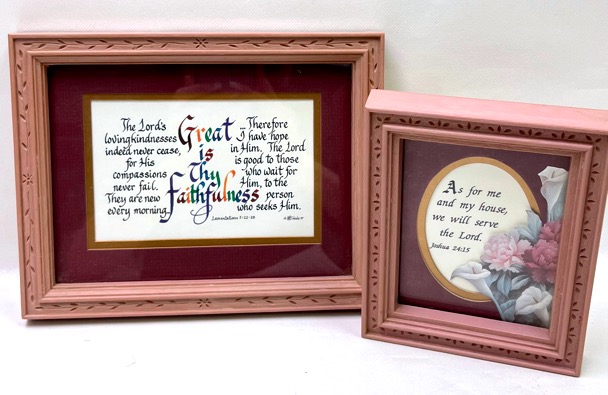 The Lord's
lovingkindnesses
indeed never cease,
for His
compassions
never fail.
They are new
every morning.
Great
is
Thy
Faithfulness
Therefore
I have hope
in Him. The Lord
is good to those
who wait for
Him, to the
person
who seeks Him.
Lamentations 3:22-25
As for me
and my house,
we will serve
the Lord.
Joshua 24:15